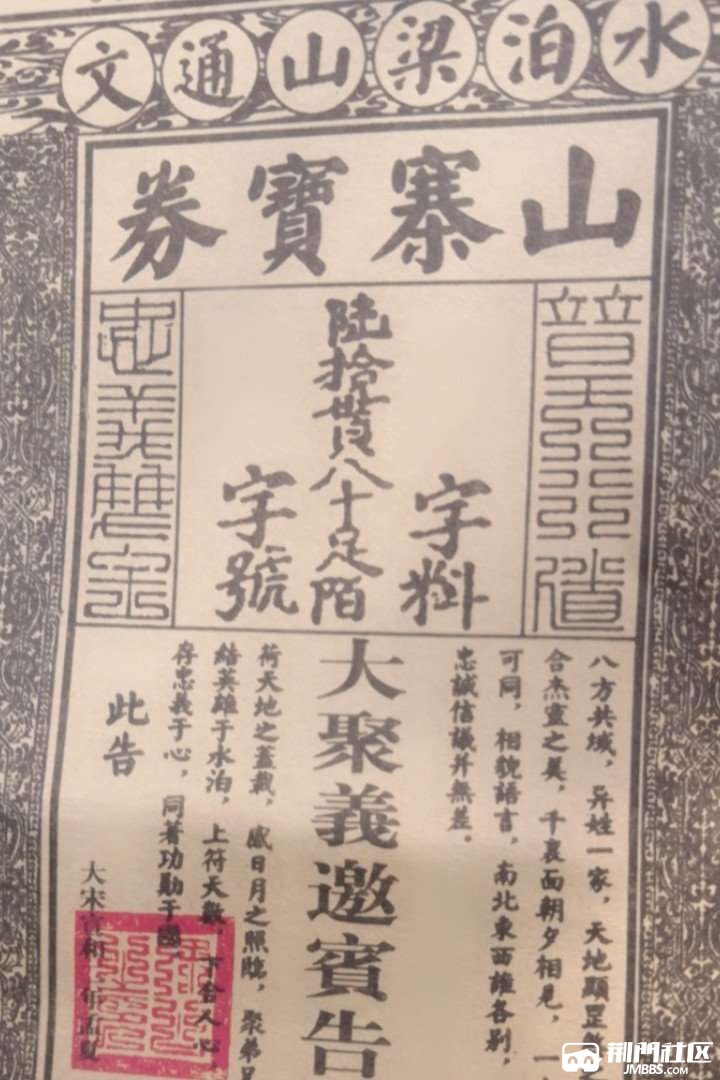 水泊梁山通文
山寨寶券
替天行道
字料
陸拾貫八十足陌
字號
忠義雙全
八方共域，异姓一家，天地顯罡
合杰靈之美，千裏面朝夕相見，一
可同，相貌語言，南北東西雖各别，
忠誠信議并無差。
大聚義邀賓告
荷天地之蓋載，感日月之照臨，聚弟兄
結英雄于水泊，上符天數，下合人心
存忠義于心，同著功勛于國。
此告
大宋宣和 年孟夏
荆門社区
JMBBS.COM